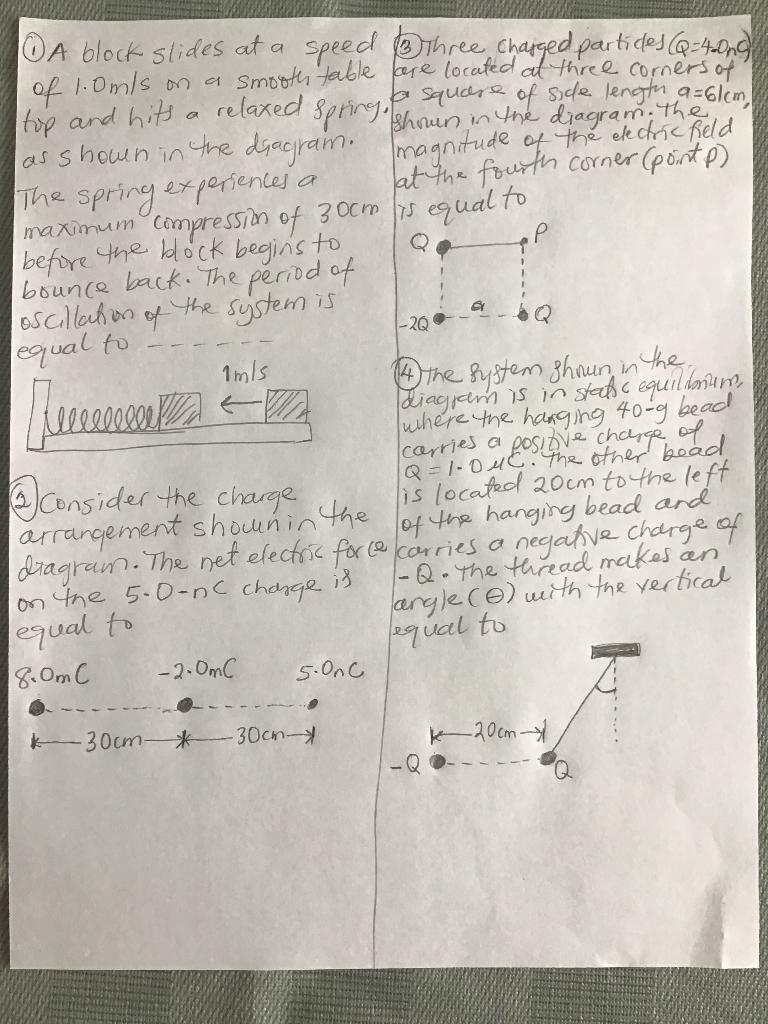 ① A block slides at a speed
of 1.0m/s on a smooth table
top and hits a relaxed spring,
as shown in the diagram.
The spring experiences a
maximum compression of 30cm
before the block begins to
bounce back. The period of
oscillation of the system is
equal to -------
1m/s
② Consider the charge
arrangement shown in the
diagram. The net electric force
on the 5.0-nC charge is
equal to
8.0mC -2.0mC 5.0nC
30cm 30cm
③ Three charged particles (Q=4.0nC)
are located at three corners of
a square of side length a=61cm,
shown in the diagram. The
magnitude of the electric field
at the fourth corner (point P)
is equal to
Q P
-2Q a Q
④ The system shown in the
diagram is in static equilibrium,
where the hanging 40-g bead
carries a positive charge of
Q=1.0μC. The other bead
is located 20cm to the left
of the hanging bead and
carries a negative charge of
-Q. The thread makes an
angle (θ) with the vertical
equal to
20cm
-Q Q